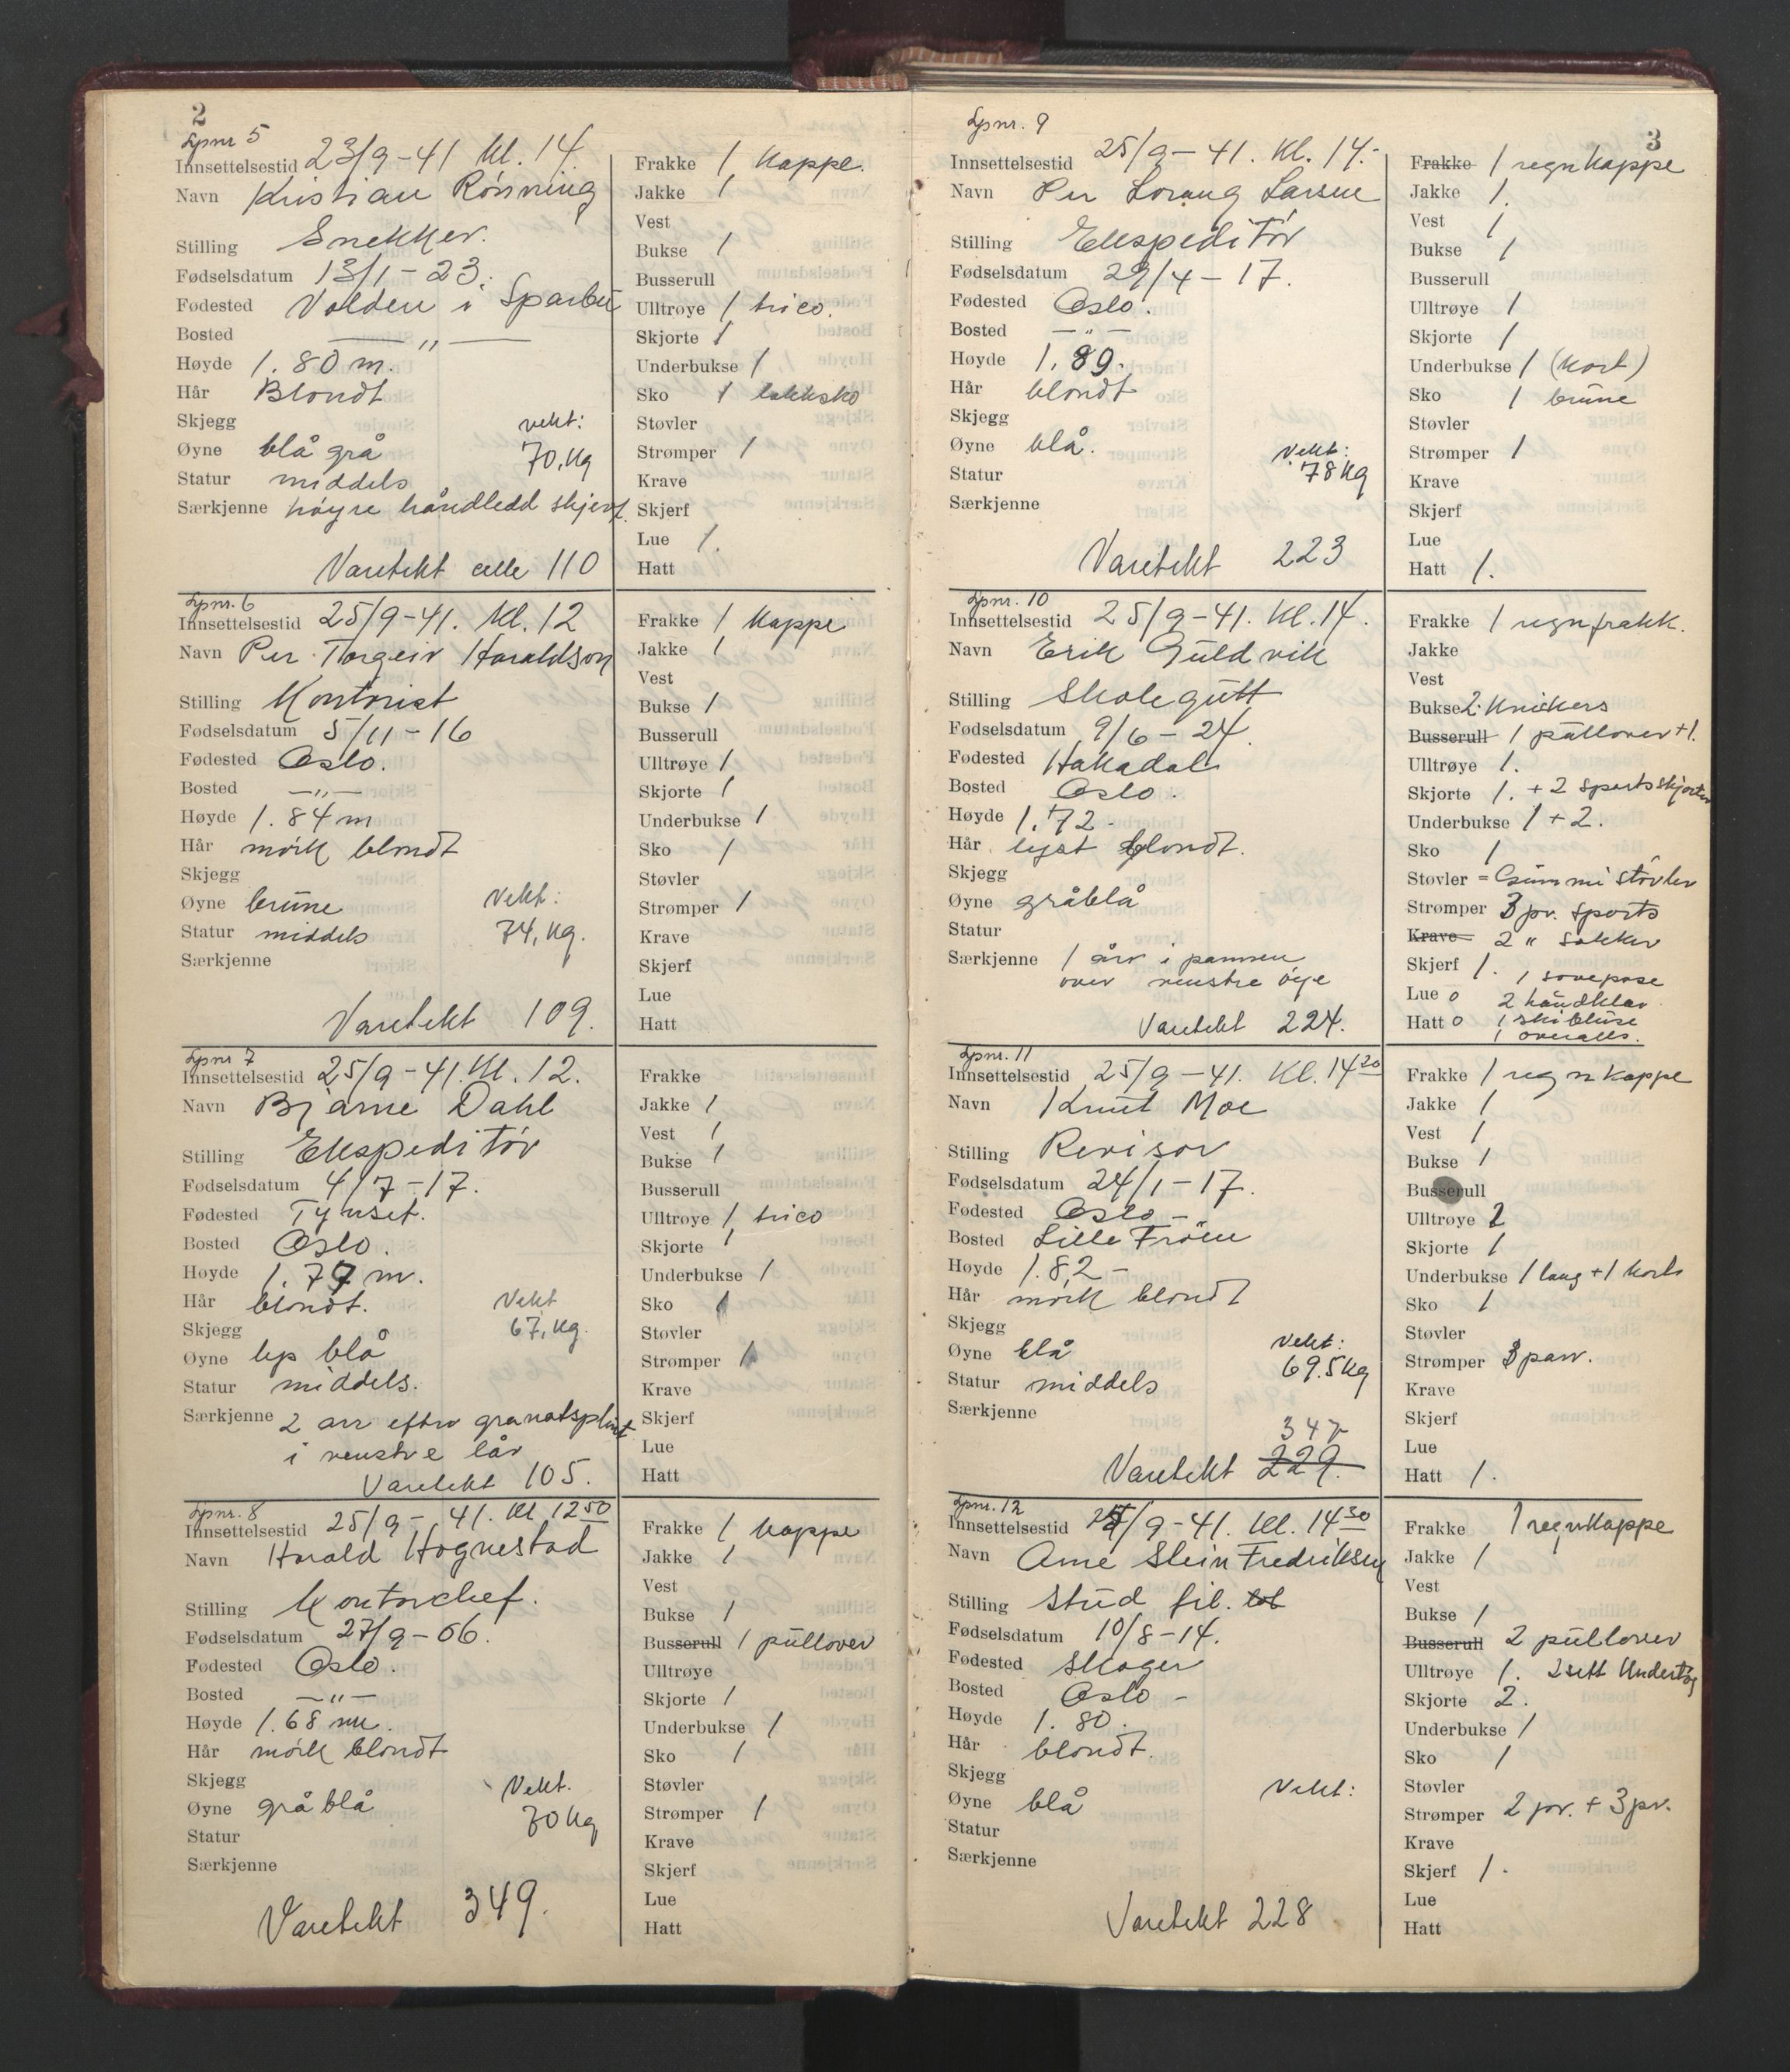 2
Lpnr 5
Innsettelsestid 23/9-41 Kl. 14.
Navn Kristian Rönning
Stilling Snekker.
Fødselsdatum 13/1-23.
Fødested Volden i Sparbu
Bosted — " —
Høyde 1.80 m.
Hår Blondt
Skjegg vekt:
Øyne blå grå 70, kg
Statur middels
Særkjenne höyre håndledd skjevt.
Varetekt celle 110
Frakke 1 Kappe.
Jakke 1
Vest
Bukse 1
Busserull
Ulltrøye 1 trico.
Skjorte 1
Underbukse 1
Sko 1 lakksko
Støvler
Strømper 1
Krave
Skjerf
Lue 1.
Hatt
Lpnr. 6
Innsettelsestid 25/9-41. Kl. 12
Navn Per Torgeir Haraldson
Stilling Kontorist
Fødselsdatum 5/11-16
Fødested Oslo.
Bosted — " —
Høyde 1.84 m
Hår mörk blondt
Skjegg
Øyne brune Vekt:
Statur middels 74, kg.
Særkjenne
Varetekt 109.
Frakke 1 Kappe
Jakke 1
Vest
Bukse 1
Busserull
Ulltrøye 1
Skjorte 1
Underbukse 1
Sko 1
Støvler
Strømper 1
Krave
Skjerf
Lue
Hatt
Lpnr 7
Innsettelsestid 25/9-41. Kl. 12.
Navn Bjarne Dahl
Stilling Ekspeditör
Fødselsdatum 4/7-17.
Fødested Tynset.
Bosted Oslo.
Høyde 1.79 m.
Hår blondt. Vekt
Skjegg 67, kg.
Øyne lys blå
Statur middels.
Særkjenne 2 arr efter granatsplint
i venstre lår
Varetekt 105.
Frakke
Jakke 1
Vest 1
Bukse 1
Busserull
Ulltrøye 1 trico
Skjorte 1
Underbukse 1
Sko 1
Støvler
Strømper 1
Krave
Skjerf
Lue
Hatt
Lpnr. 8
Innsettelsestid 25/9-41. Kl 12 50
Navn Harald Hognestad
Stilling Kontorchef.
Fødselsdatum 27/9-06.
Fødested Oslo.
Bosted — " —
Høyde 1.68 m.
Hår mörk blondt
Skjegg Vekt.
Øyne grå blå 70 kg
Statur
Særkjenne
Varetekt 349.
Frakke 1 Kappe
Jakke 1
Vest
Bukse 1
Busserull 1 pullover
Ulltrøye
Skjorte 1
Underbukse 1
Sko 1
Støvler
Strømper 1
Krave
Skjerf
Lue
Hatt
3
Lpnr. 9
Innsettelsestid 25/9-41. Kl. 14.-
Navn Per Lorang Larsen
Stilling Ekspeditör
Fødselsdatum 29/4-17.
Fødested Oslo.
Bosted — " —
Høyde 1.89.
Hår blondt
Skjegg
Øyne blå. Vekt:
Statur 78 kg
Særkjenne
Varetekt 223
Frakke 1 regnkappe
Jakke 1.
Vest 1
Bukse 1
Busserull
Ulltrøye 1
Skjorte 1
Underbukse 1 (kort)
Sko 1 brune
Støvler
Strømper 1
Krave
Skjerf
Lue
Hatt 1.
Lpnr. 10
Innsettelsestid 25/9-41. Kl. 14.
Navn Erik Guldvik
Stilling Skolegutt
Fødselsdatum 9/6-24.
Fødested Hakadal
Bosted Oslo.
Høyde 1.72-
Hår lyst blondt.
Skjegg
Øyne gråblå
Statur
Særkjenne 1 arr i pannen
over venstre öye
Varetekt 224.
Frakke 1 regnfrakk.
Jakke
Vest
Bukse 2. Knickers
Busserull 1 pullover +1.
Ulltrøye 1.
Skjorte 1. + 2 sportsskjorter
Underbukse 1 + 2.
Sko 1
Støvler = Gummi stövler
Strømper 3 pr. sports
Krave 2 " sokker
Skjerf 1. 1 sovepose
Lue 0 2 håndklær
Hatt 0 1 skibluse
1 overalls.
Lpnr. 11
Innsettelsestid 25/9-41. Kl. 14 20
Navn Knut Moe
Stilling Revisor
Fødselsdatum 24/1-17.
Fødested Oslo-
Bosted Lille Fröen
Høyde 1.82-
Hår mörk blondt
Skjegg
Øyne blå Vekt:
Statur middels 69.5 kg
Særkjenne
347
Varetekt 229.
Frakke 1 regnkappe
Jakke 1
Vest 1
Bukse 1
Busserull
Ulltrøye 2
Skjorte 1
Underbukse 1 lang + 1 kort
Sko 1
Støvler
Strømper 3 parr.
Krave
Skjerf
Lue
Hatt 1.
Lpnr. 12
Innsettelsestid 25/9-41. Kl. 14 30
Navn Arne Stein Fredriksen
Stilling Stud fil.
Fødselsdatum 10/8-14.
Fødested Skoger
Bosted Oslo-
Høyde 1.80.
Hår blondt.
Skjegg
Øyne blå Vekt:
Statur
Særkjenne
Varetekt 228
Frakke 1 regnkappe
Jakke 1
Vest
Bukse 1
Busserull 2 pullover
Ulltrøye 1. 2 sett Undertøy
Skjorte 2.
Underbukse 1
Sko 1
Støvler
Strømper 2 pr. + 3 pr.
Krave
Skjerf 1.
Lue
Hatt